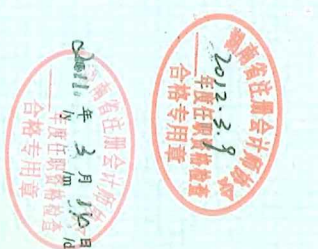 湖南省注册会计师协会
2012.3.9
年度任职资格检查
合格专用章
南省注册会计师
2011.年 3月 日
/y /m /d
年度任职资格检查
合格专用章